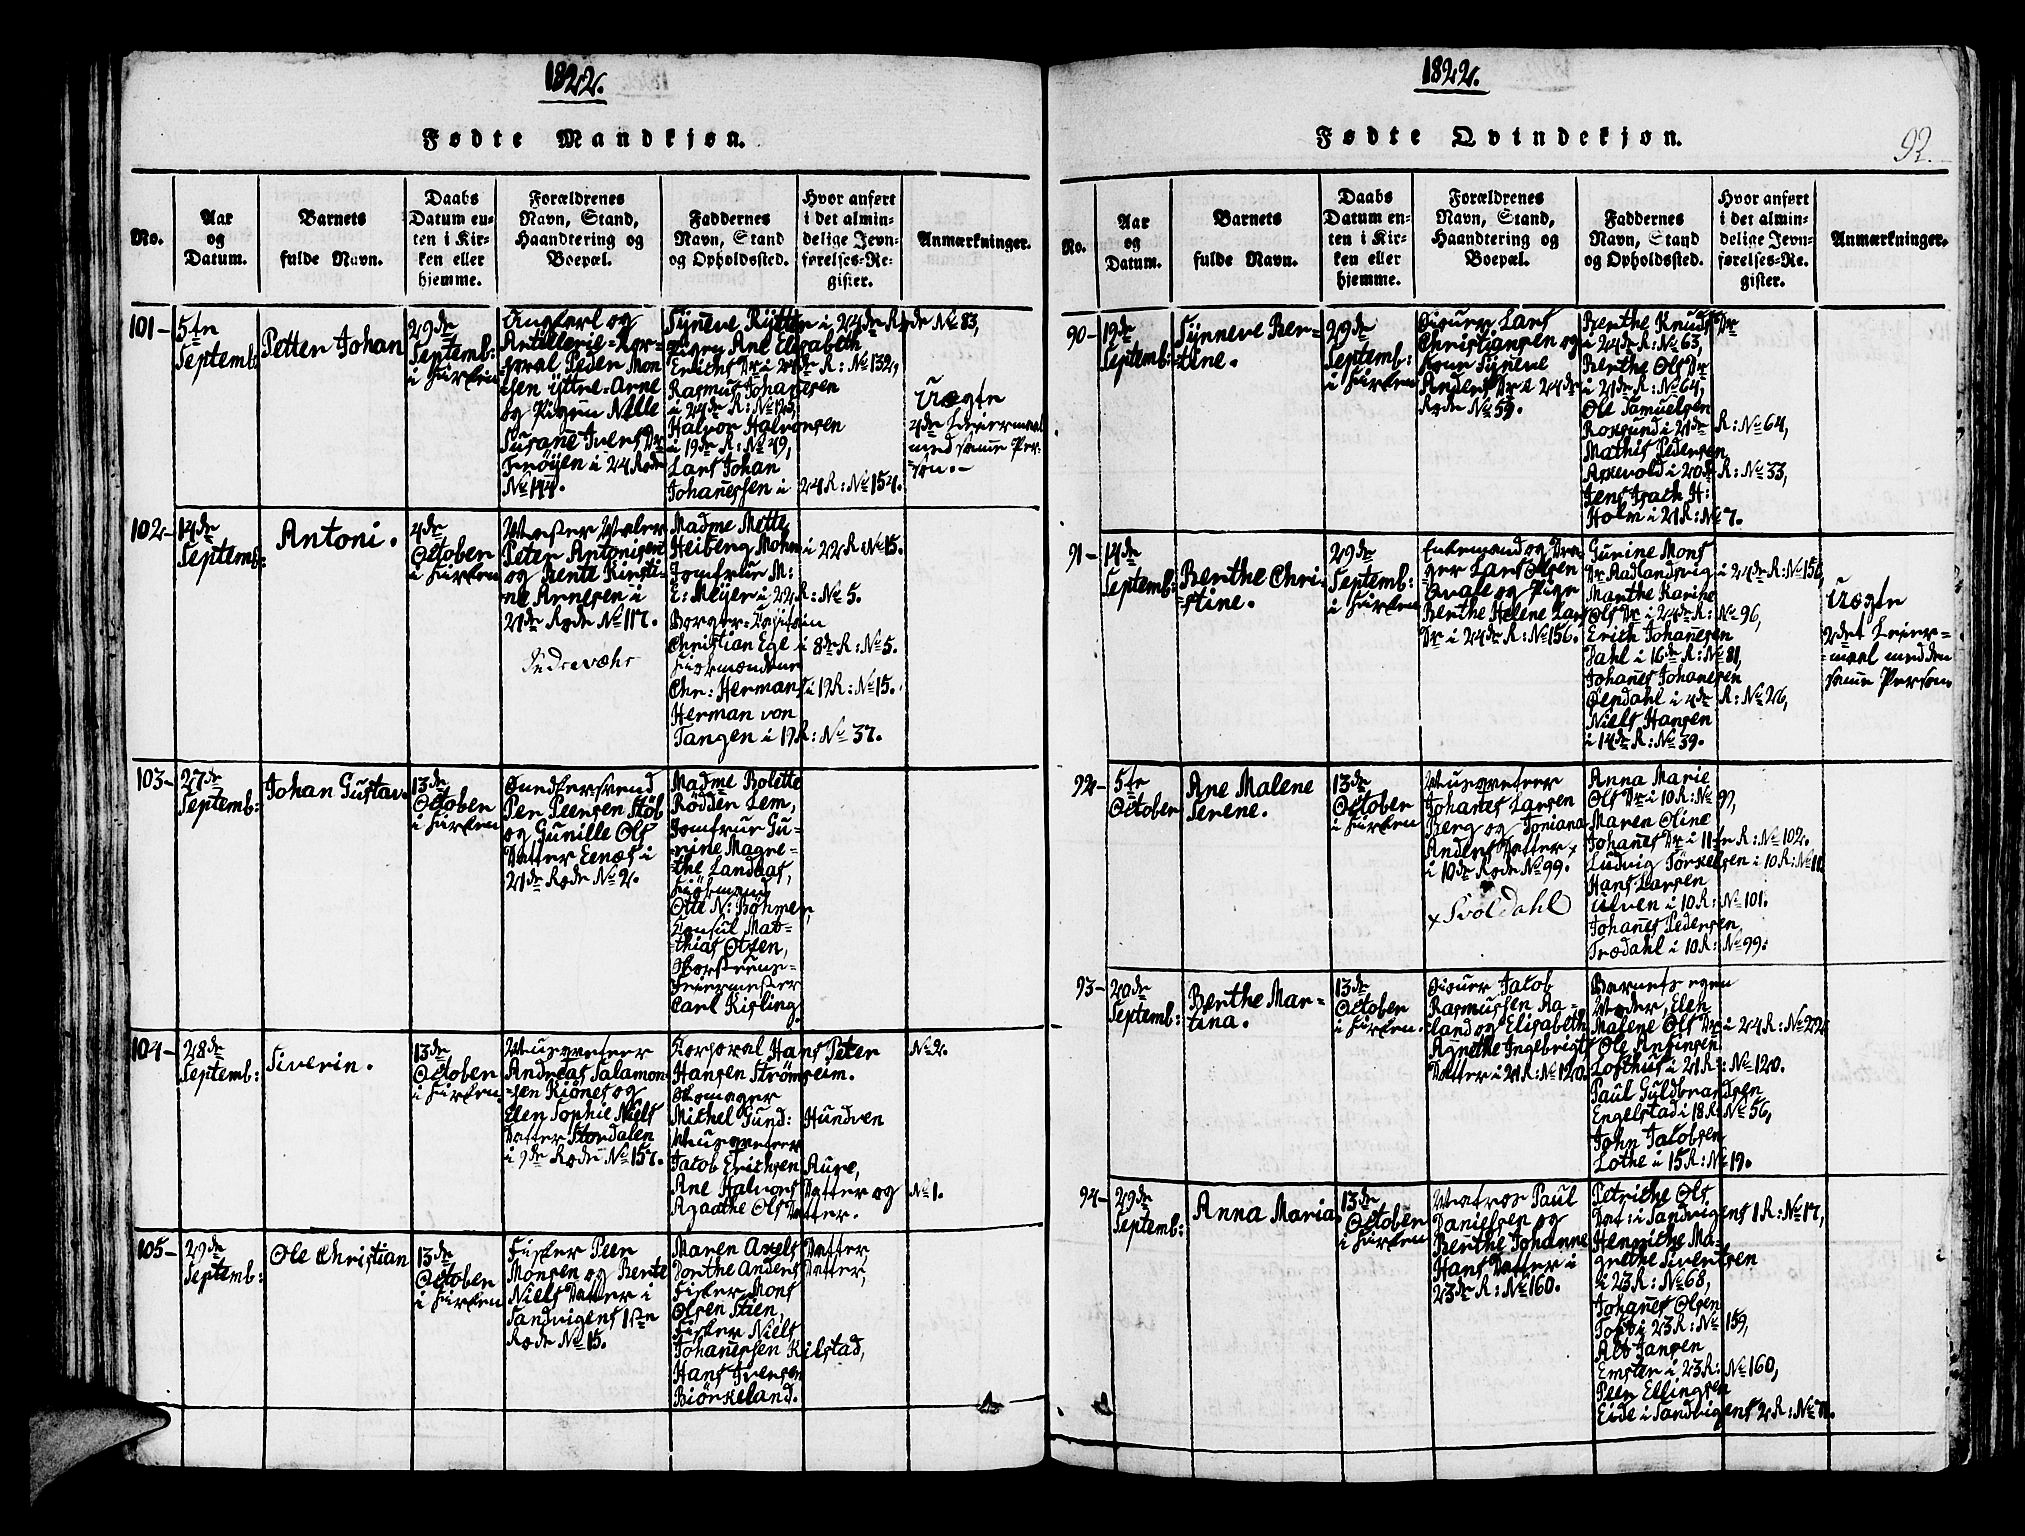 1822.
Fødte Mandkjøn.
No.
Aar
og
Datum.
Barnets
fulde Navn.
Daabs
Datum en-
ten i Kir-
ken eller
hjemme.
Forældrenes
Navn, Stand,
Haandtering og
Boepæl.
Faddernes
Navn, Stand
og Opholdssted.
Hvor anført
i det almin-
delige Jevn-
førelses-Re-
gister.
Anmærkninger.
101-
5te
Septemb:
Petter Johan
29de
Septemb:
i Kirken
Ungkerl og
Artillerie-Kor-
poral Peder Mon-
sen Yttre-Arne
og Pigen Nille
Susane Ivers Dr
Frøyen i 24 Rode
No 144.
Synneve Rytter i 24de Rode No 83,
Pigen Ane Elisabeth
Erichs Dr i 21de R: No 132,
Rasmus Johanesen
i 24de R: No 125,
Halvor Halvorsen
i 19de R: No 49,
Lars Johan
Johanessen i 24 R: No 154.
Uægte
4de Leiermaal
med samme Per-
son.-
102-
14de
Septemb:
Antoni.
4de
October
i Kirken
Mester Maler
Peter Antonisen
og Bente Kirsti-
ne Arnesen i
21de Rode No 117.
Indrevæhr
Madme Mette
Heiberg Mohn i 22 R: No 15.
Jomfrue M:
E: Meyer i 22 R: No 5.
Borger-Capitain
Christian Ege i 8de R: No 5.
Kiøbmændene
Chr: Hermans i 17 R: No 15.
Herman von
Tangen i 17 R: No 37.
103-
27de
Septemb:
Johan Gustav.
13de
October
i Kirken
Per Peersen Støb
og Gunille Ols
Datter Eenæs i
21de Rode No 2.
Madme Bolette
Rødder Lem,
Jomfrue Gu-
rine Magre-
the Landaas,
Kiøbmand
Otte N: Bøhmer,
Consul Mat-
thias Olsen,
Skorsteens-
Feiermester
Carl Kisling.
104-
28de
Septemb:
Siverin.
13de
October
i Kirken
Andreas Salamon-
sen Kiønes og
Elen Sophie Niels
Datter Stordalen
i 9de Rode No 157.
Korporal Hans Peter
Hansen Strømseim.
Skomager
Michel Gund: Hundven
Jacob Erichsen Aure,
Ane Halvors Datter og
Agaathe Ols Datter.
No 2.
No 1.
105-
29de
Septemb:
Ole Christian
13de
October
i Kirken
Fisker Peer
Monsen og Bente
Niels Datter i
Sandvigens 1ste
Rode No 15.
Maren Axels Datter
Dorthe Anders Datter,
Fisker Mons
Olsen Stien,
Fisker Niels
Johanessen Kilstad,
Hans Iversen
Biørkeland.
1822.
Fødte Qvindekjøn.
92.
No.
Aar
og
Datum.
Barnets
fulde Navn.
Daabs
Datum en-
ten i Kir-
ken eller
hjemme.
Forældrenes
Navn, Stand,
Haandtering og
Boepæl.
Faddernes
Navn, Stand
og Opholdssted.
Hvor anført
i det almin-
delige Jevn-
førelses-Re-
gister.
Anmærkninger.
90-
19de
Septemb:
Synneve Ber-
tine.
29de
Septemb:
i Kirken
Lars
Christiansen og
Kone Synneve
Anders Dr i 24de
Rode No 59.
Berthe Knuds Dr
i 24de R: No 63,
Berthe Ols Dr
i 21de R: No 64,
Ole Samuelsen
Roksund i 21de R: No 64,
Mathis Pedersen
Askevold i 20 R: No 33,
Jens Isach H:
Holm i 21 R: No 7.
91-
14de
Septemb:
Berthe Chri-
stine.
29de
Septemb:
i Kirken
Enkemand og Dra-
ger Lars Olsen
Qvale og Pige
Berthe Helene Lars
Dr i 24de R: No 156.
Gurine Mons
Dr Radlandsvig i 24de R: No 156,
Marthe Karine
Ols Dr i 24de R: No 96,
Erich Johanesen
Dahl i 16de R: No 81,
Johanes Johanesen
Øendahl i 4de R: No 26,
Niels Hansen
i 14de R: No 39.
Uægte
2det Leier-
maal med den
samme Person.
92-
5te
October
Ane Malene
Serene.
13de
October
i Kirken
Johanes Larsen
Berg og Joniana
Anders Datter x
i 10de Rode No 99.
x Svoldahl
Anna Marie
Ols Dr i 10 R: No 97,
Maren Oline
Johanes Dr i 11te R: No 102.
Ludvig Tørkelsen i 10 R: No 11
Hans Larsen
Ulven i 10 R: No 101.
Johanes Pedersen
Trædahl i 10 R: No 99.
93-
20de
Septemb:
Berthe Mar-
tina.
13de
October
i Kirken.
Jacob
Rasmussen Aa-
land og Elisabeth
Agnethe Ingebrigts
Datter i 21 R: No 120.
Barnets egen
Moder, Elen
Malene Ols Dr i 24 R: No 222
Ole Anfinsen
Lofthus i 21 R: No 120.
Paul Guldbrandsen
Engelstad i 18 R: No 56,
John Jacobsen
Lothe i 15 R: No 19.
94-
29de
Septemb:
Anna Maria.
13de
October
i Kirken
Matros Paul
Danielsen og
Berthe Johanne
Hans Datter i
23de R: No 160.
Petriche Ols
Dat: i Sandvigens 1 R: No 17,
Henriche Ma-
grethe Sivertsen
i 23 R: No 68,
Johanes Olsen
Toft i 23 R: No 159,
Alb Jansen
Emster i 23 R: No 160,
Peer Ellingsen
Eide i Sandvigens 2 R: No 71.